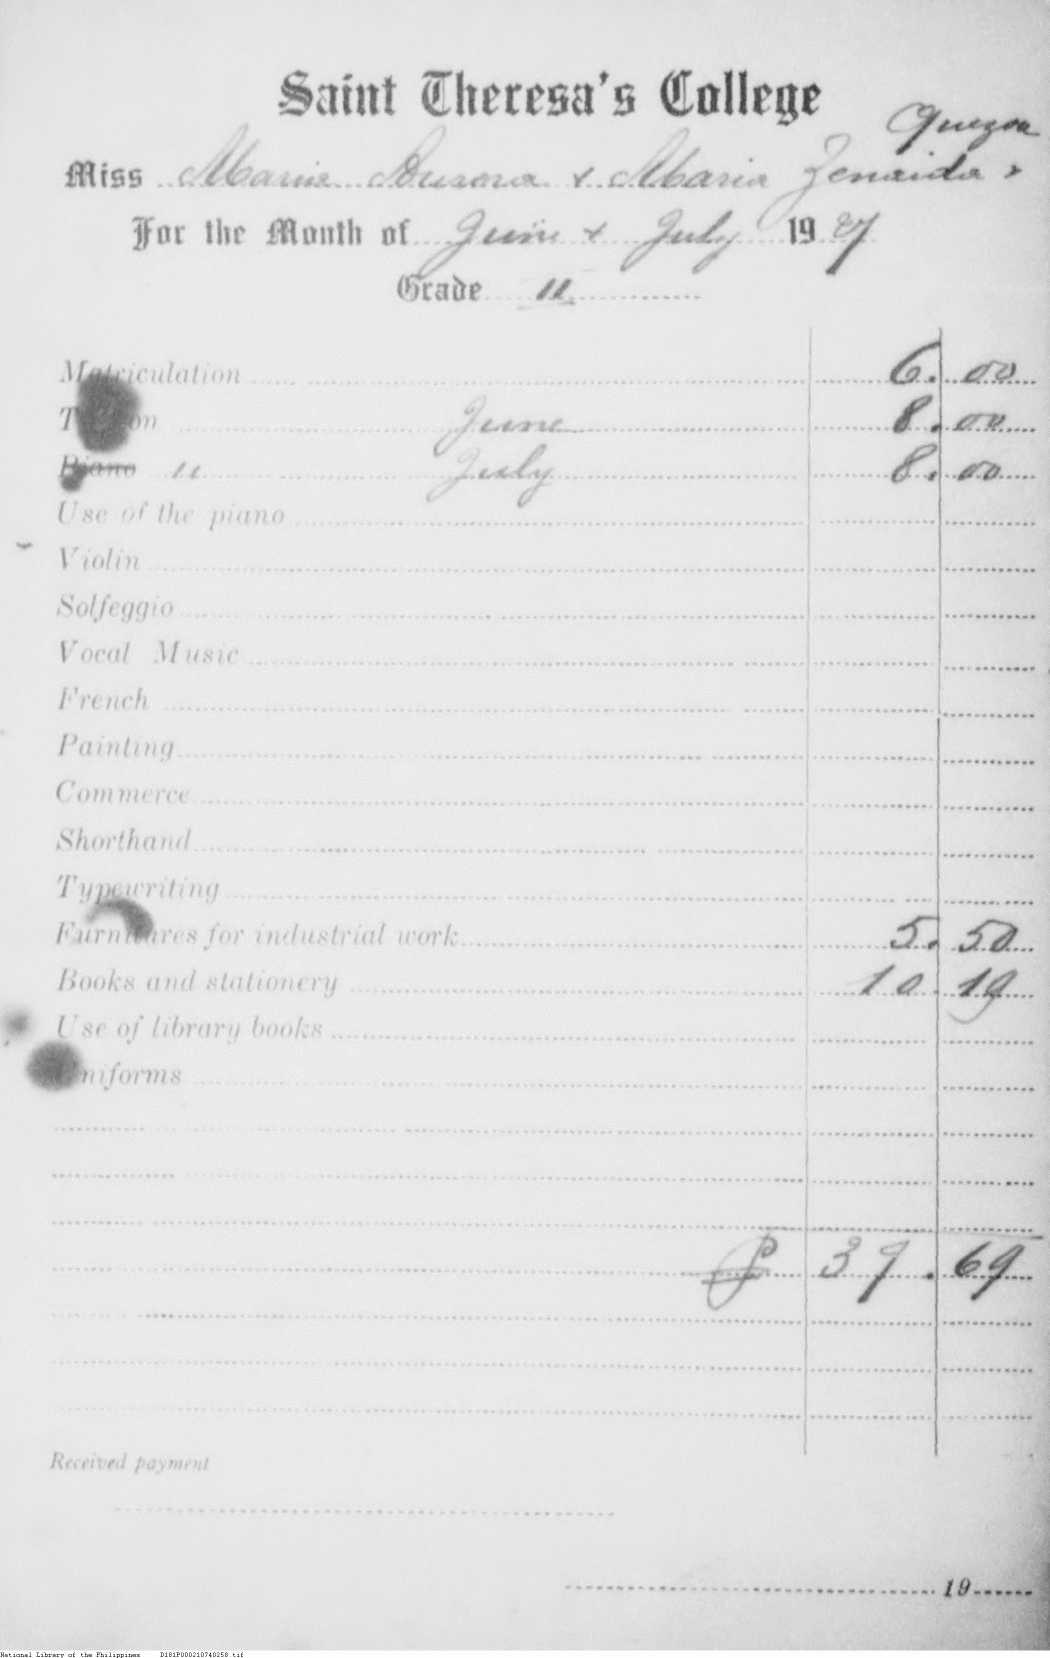 Saint Theresa's College
Quezon
Miss Maria Aurora & Maria Zenaida
For the Month of June & July 1927
Grade II
Matriculation 6.00
Tuition June 8.00
Piano " July 8.00
Use of the piano
Violin
Solfeggio
Vocal Music
French
Painting
Commerce
Shorthand
Typewriting
Furnitures for industrial work 5.50
Books and stationery 10.19
Use of library books
Uniforms
₱ 37.69
Received payment
19
National Library of the Philippines D181P000210740258.tif